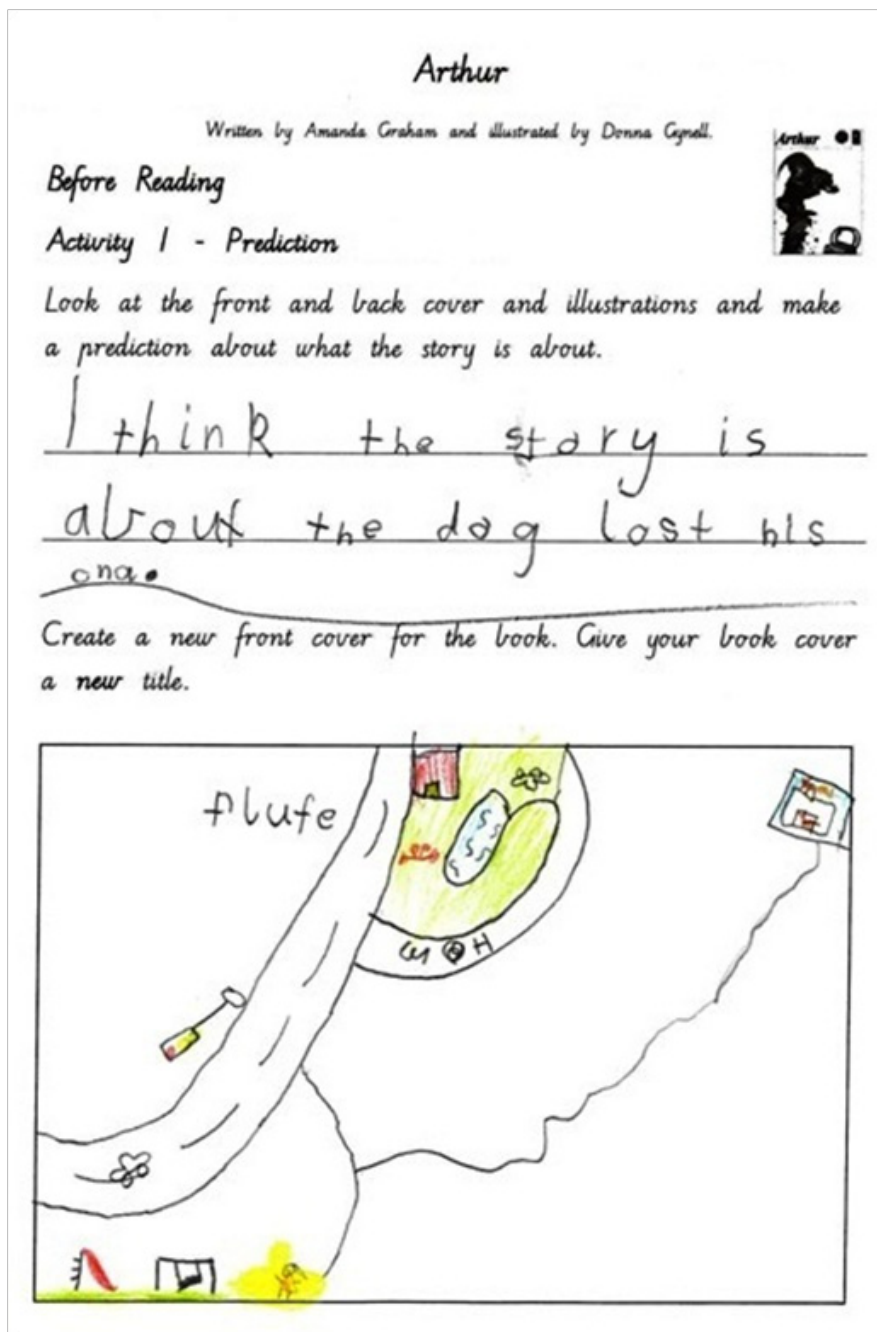 Arthur
Written by Amanda Graham and illustrated by Donna Gynell.
Arthur
Before Reading
Activity 1 - Prediction
Look at the front and back cover and illustrations and make
a prediction about what the story is about.
I think the story is
about the dog lost his
ona.
Create a new front cover for the book. Give your book cover
a new title.
flufe